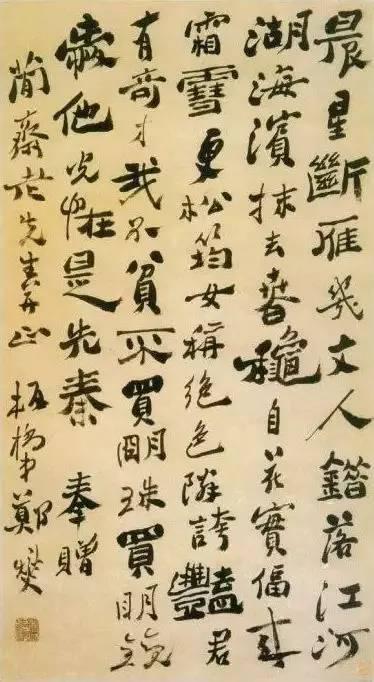 晨星斷雁幾文人錯落江河
湖海濱抹去春穐自花實偪來
霜雪更松筠女稱絕色鄰誇豔君
有奇才我不貧不買明珠買明鏡
愛他光怪是先秦 奉贈
簡齋老先生正 板橋弟鄭燮